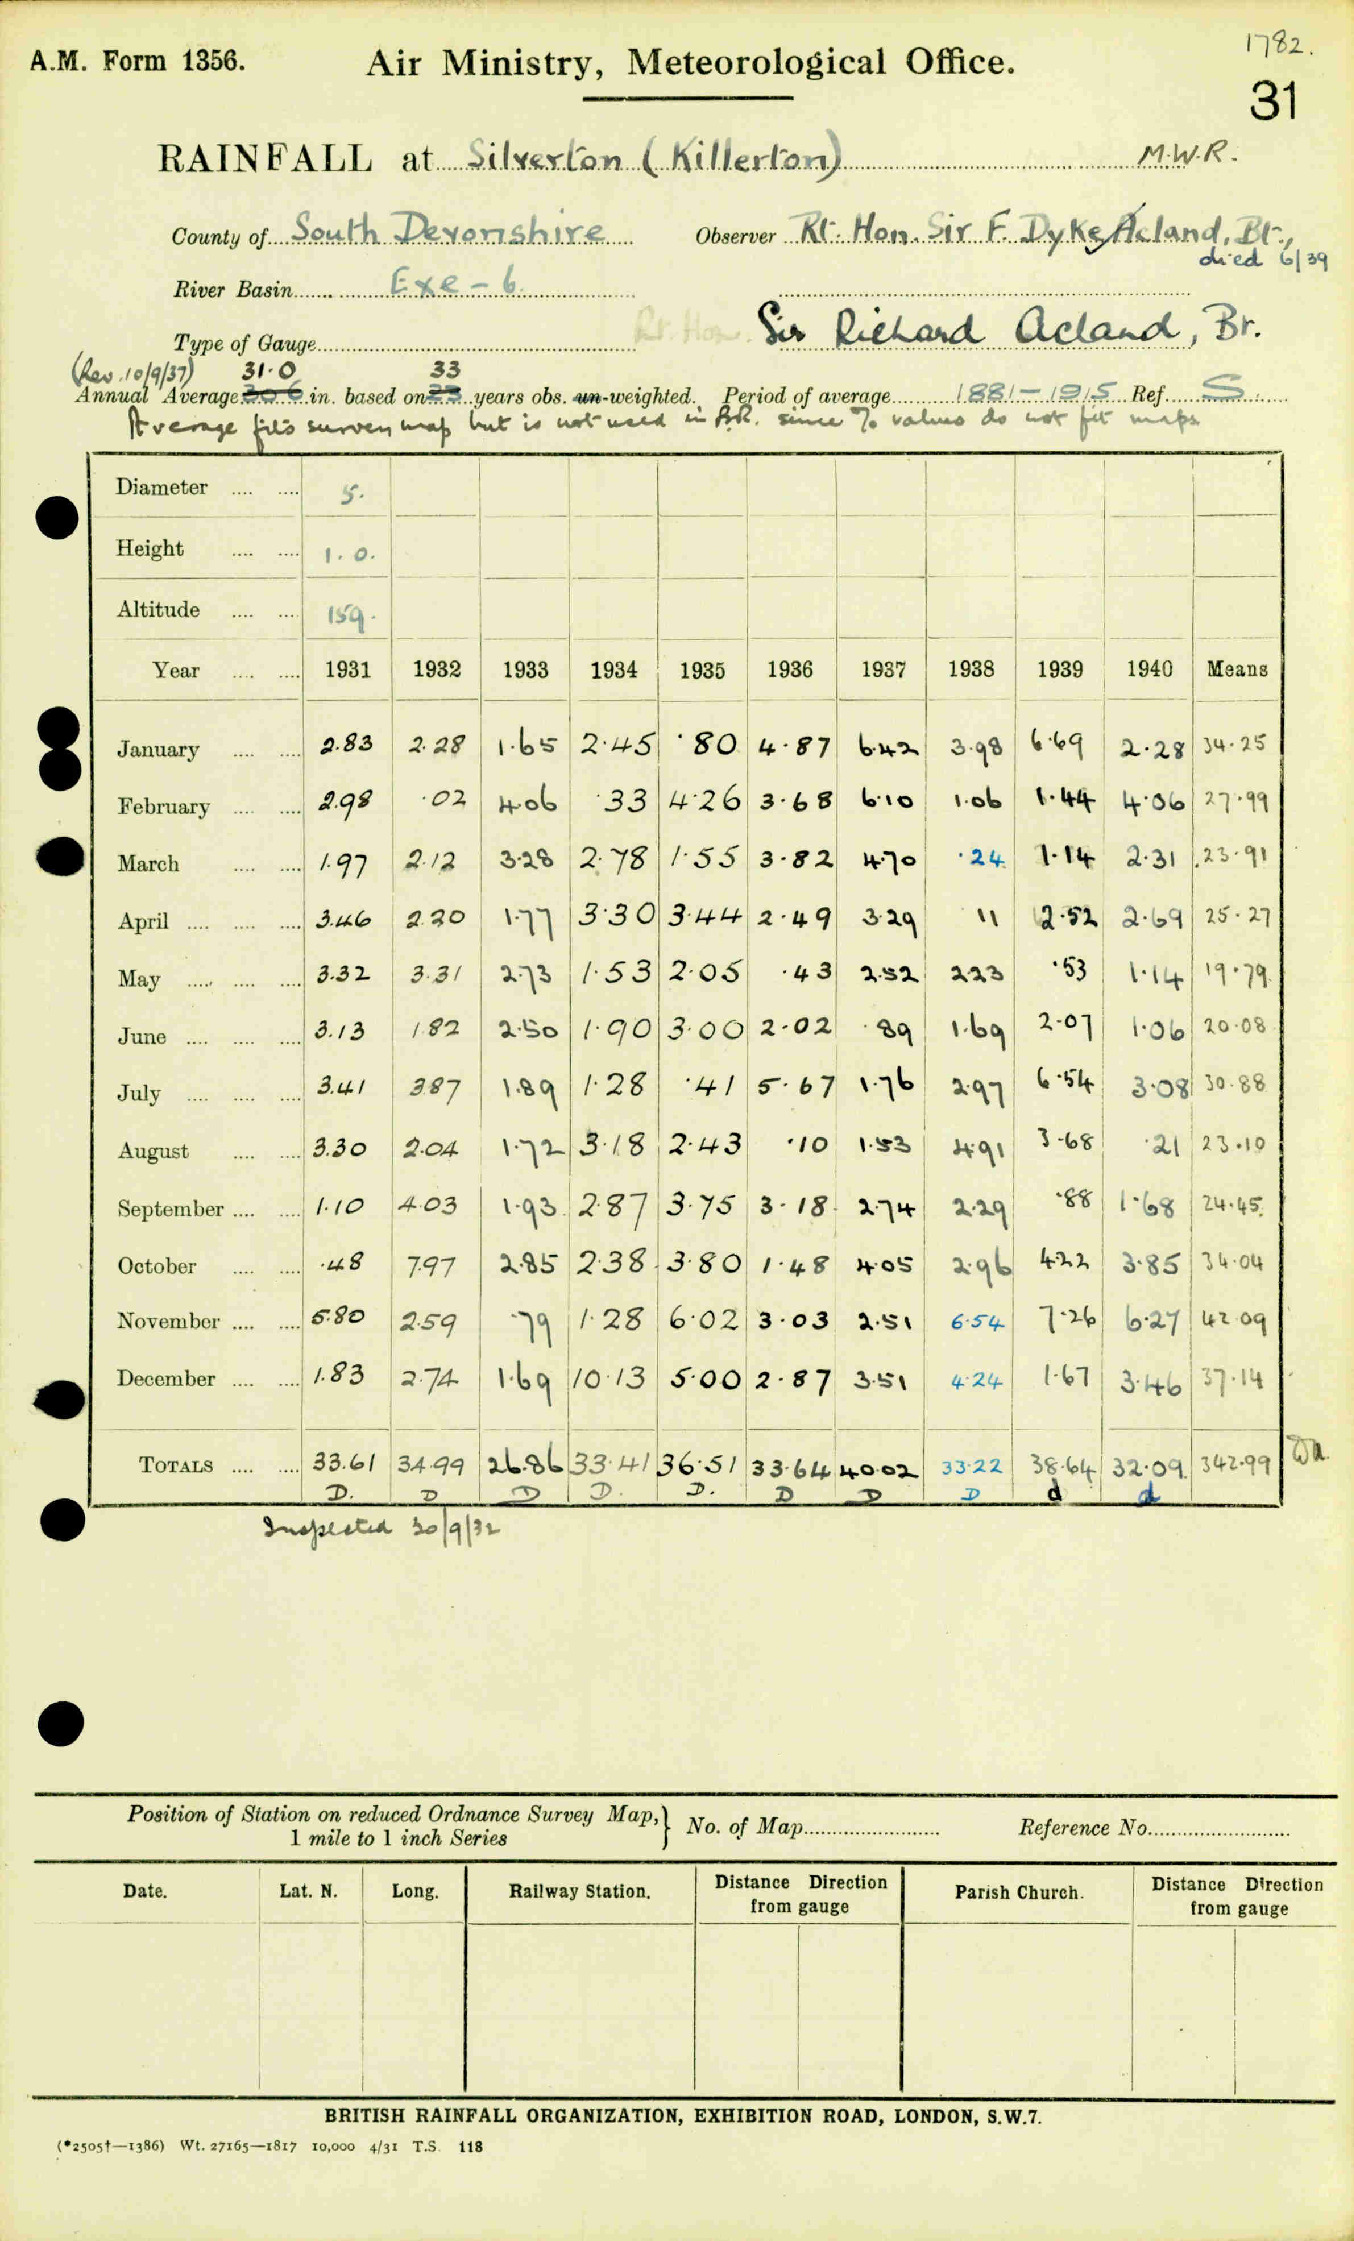 1782.
A.M. Form 1356. Air Ministry, Meteorological Office.
31
RAINFALL at Silverton (Killerton) M.W.R.
County of South Devonshire Observer Rt. Hon. Sir F. Dyke Acland, Bt.,
died 6/39
River Basin Exe - 6
Type of Gauge Rt. Hon. Sir Richard Acland, Br.
(Rev. 10/9/37) 31.0 33
Annual Average 30.6 in. based on 23 years obs. un-weighted. Period of average 1881-1915 Ref. S.
Average fits survey map but is not used in B.R. since % values do not fit maps
Diameter .... .... 5.
Height .... .... 1.0.
Altitude .... .... 159.
Year .... .... 1931 1932 1933 1934 1935 1936 1937 1938 1939 1940 Means
January .... .... 2.83 2.28 1.65 2.45 .80 4.87 6.42 3.98 6.69 2.28 34.25
February .... .... 2.98 .02 4.06 .33 4.26 3.68 6.10 1.06 1.44 4.06 27.99
March .... .... 1.97 2.12 3.28 2.78 1.55 3.82 4.70 .24 1.14 2.31 23.91
April .... .... .... 3.46 2.20 1.77 3.30 3.44 2.49 3.29 11 2.52 2.69 25.27
May .... .... .... 3.32 3.31 2.73 1.53 2.05 .43 2.52 2.23 .53 1.14 19.79
June .... .... .... 3.13 1.82 2.50 1.90 3.00 2.02 .89 1.69 2.07 1.06 20.08
July .... .... .... 3.41 3.87 1.89 1.28 .41 5.67 1.76 2.97 6.54 3.08 30.88
August .... .... 3.30 2.04 1.72 3.18 2.43 .10 1.53 4.91 3.68 .21 23.10
September .... .... 1.10 4.03 1.93 2.87 3.75 3.18 2.74 2.29 .88 1.68 24.45
October .... .... .48 7.97 2.85 2.38 3.80 1.48 4.05 2.96 4.22 3.85 34.04
November .... .... 5.80 2.59 .79 1.28 6.02 3.03 2.51 6.54 7.26 6.27 42.09
December .... .... 1.83 2.74 1.69 10.13 5.00 2.87 3.51 4.24 1.67 3.46 37.14
TOTALS .... .... 33.61 34.99 26.86 33.41 36.51 33.64 40.02 33.22 38.64 32.09 342.99
D. D D D. D. D D D d d
Inspected 30/9/32
Position of Station on reduced Ordnance Survey Map,} No. of Map Reference No.
1 mile to 1 inch Series
Date. Lat. N. Long. Railway Station. Distance Direction from gauge Parish Church. Distance Direction from gauge
BRITISH RAINFALL ORGANIZATION, EXHIBITION ROAD, LONDON, S.W.7.
(*2505†—1386) Wt. 27165—1817 10,000 4/31 T.S. 118